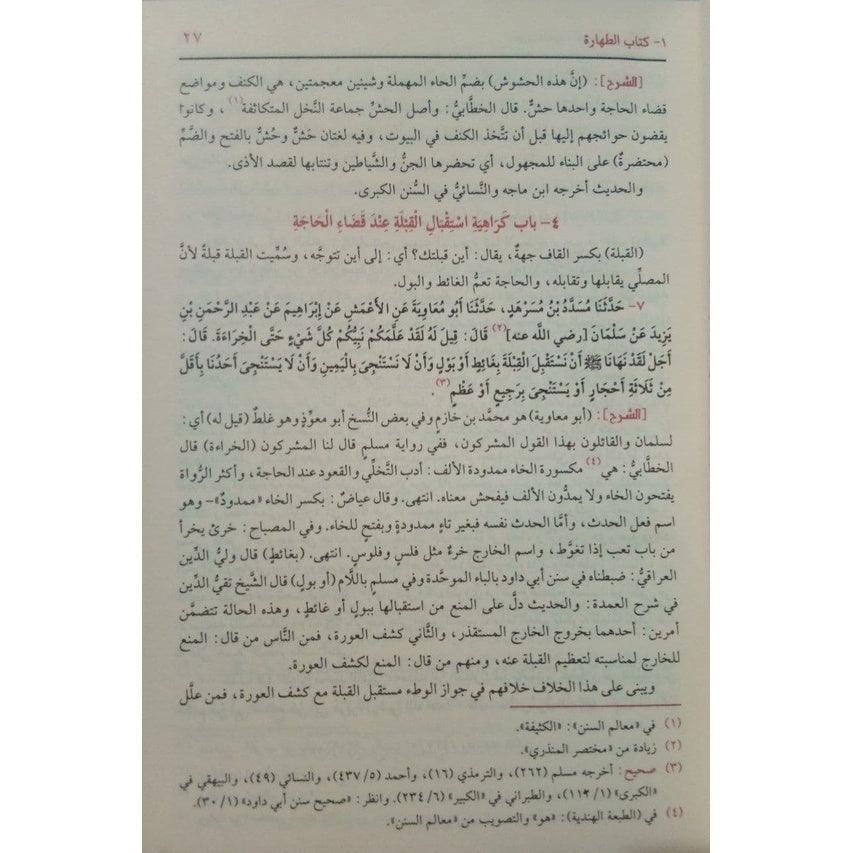 ١- كتاب الطهارة ٢٧
[الشرح]: (إنَّ هذه الحشوش) بضمِّ الحاء المهملة وشينين معجمتين، هي الكنف ومواضع
قضاء الحاجة واحدها حشٌّ. قال الخطَّابيُّ: وأصل الحشِّ جماعة النَّخل المتكاثفة(١)، وكانوا
يقضون حوائجهم إليها قبل أن تتَّخذ الكنف في البيوت، وفيه لغتان حَشٌّ وحُشٌّ بالفتح والضَّمِّ
(محتضرةٌ) على البناء للمجهول، أي تحضرها الجنُّ والشَّياطين وتنتابها لقصد الأذى.
والحديث أخرجه ابن ماجه والنَّسائيُّ في السُّنن الكبرى.
٤- باب كَرَاهِيَةِ اسْتِقْبَالِ الْقِبْلَةِ عِنْدَ قَضَاءِ الْحَاجَةِ
(القبلة) بكسر القاف جهةٌ، يقال: أين قبلتك؟ أي: إلى أين تتوجَّه، وسُمِّيت القبلة قبلةً لأنَّ
المصلِّي يقابلها وتقابله، والحاجة تعمُّ الغائط والبول.
٧- حَدَّثَنَا مُسَدَّدُ بْنُ مُسَرْهَدٍ، حَدَّثَنَا أَبُو مُعَاوِيَةَ عَنِ الأَعْمَشِ عَنْ إِبْرَاهِيمَ عَنْ عَبْدِ الرَّحْمَنِ بْنِ
يَزِيدَ عَنْ سَلْمَانَ [رضي اللَّه عنه](٢) قَالَ: قِيلَ لَهُ لَقَدْ عَلَّمَكُمْ نَبِيُّكُمْ كُلَّ شَيْءٍ حَتَّى الْخِرَاءَةَ. قَالَ:
أَجَلْ لَقَدْ نَهَانَا ﷺ أَنْ نَسْتَقْبِلَ الْقِبْلَةَ بِغَائِطٍ أَوْ بَوْلٍ وَأَنْ لَا نَسْتَنْجِيَ بِالْيَمِينِ وَأَنْ لَا يَسْتَنْجِيَ أَحَدُنَا بِأَقَلَّ
مِنْ ثَلَاثَةِ أَحْجَارٍ أَوْ يَسْتَنْجِيَ بِرَجِيعٍ أَوْ عَظْمٍ(٣).
[الشرح]: (أبو معاوية) هو محمَّد بن خازمٍ وفي بعض النُّسخ أبو معوِّذٍ وهو غلطٌ (قيل له) أي:
لسلمان والقائلون بهذا القول المشركون، ففي رواية مسلمٍ قال لنا المشركون (الخراءة) قال
الخطَّابيُّ: هي(٤) مكسورة الخاء ممدودة الألف: أدب التَّخلِّي والقعود عند الحاجة، وأكثر الرُّواة
يفتحون الخاء ولا يمدُّون الألف فيفحش معناه. انتهى. وقال عياضٌ: بكسر الخاء «ممدودٌ»- وهو
اسم فعل الحدث، وأمَّا الحدث نفسه فبغير تاءٍ ممدودةٍ وبفتح للخاء. وفي المصباح: خرئ يخرأ
من باب تعب إذا تغوَّط، واسم الخارج خرءٌ مثل فلسٍ وفلوسٍ. انتهى. (بغائطٍ) قال وليُّ الدِّين
العراقيُّ: ضبطناه في سنن أبي داود بالباء الموحَّدة وفي مسلمٍ باللَّام (أو بولٍ) قال الشَّيخ تقيُّ الدِّين
في شرح العمدة: والحديث دلَّ على المنع من استقبالها ببولٍ أو غائطٍ، وهذه الحالة تتضمَّن
أمرين: أحدهما بخروج الخارج المستقذر، والثَّاني كشف العورة، فمن النَّاس من قال: المنع
للخارج لمناسبته لتعظيم القبلة عنه، ومنهم من قال: المنع لكشف العورة.
ويبنى على هذا الخلاف خلافهم في جواز الوطء مستقبل القبلة مع كشف العورة، فمن علَّل
(١) في «معالم السنن»: «الكثيفة».
(٢) زيادة من «مختصر المنذري».
(٣) صحيح: أخرجه مسلم (٢٦٢)، والترمذي (١٦)، وأحمد (٤٣٧/٥)، والنسائي (٤٩)، والبيهقي في
«الكبرى» (١١٢/١)، والطبراني في «الكبير» (٢٣٤/٦). وانظر: «صحيح سنن أبي داود» (٣٠/١).
(٤) في (الطبعة الهندية): «هو» والتصويب من «معالم السنن».